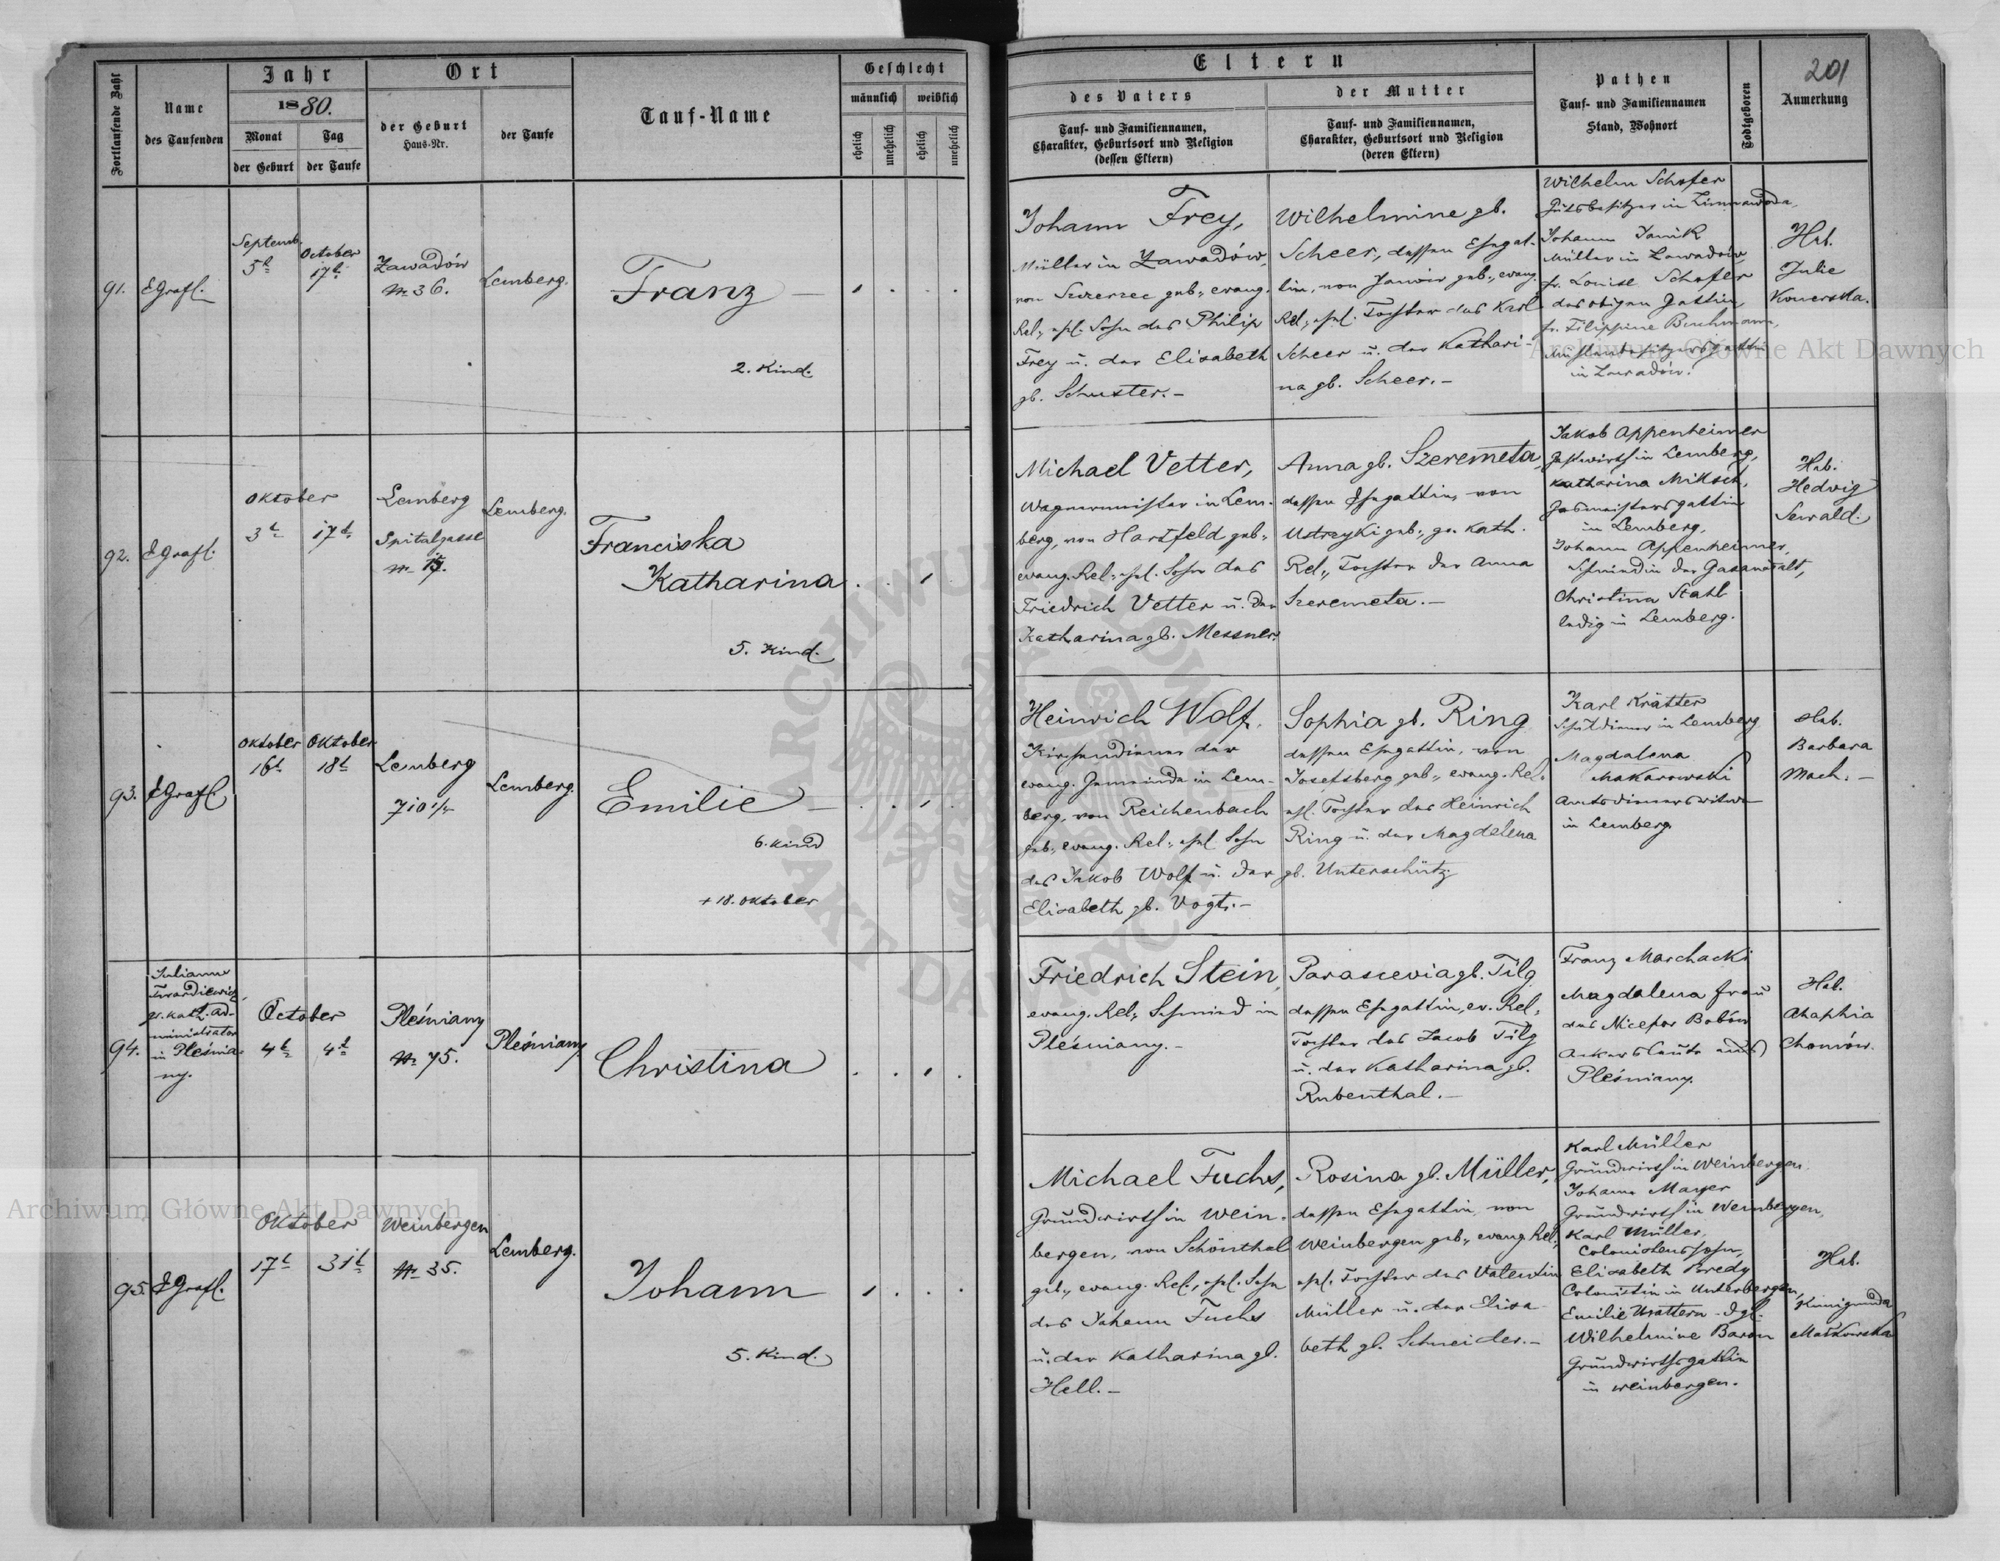 Jahr
1880.
Monat
Tag
der Geburt
der Taufe
Fortlaufende Zahl
Name
des Taufenden
Ort
der Geburt
Haus-Nr.
der Taufe
Tauf-Name
Geschlecht
männlich
weiblich
ehelich
unehelich
ehelich
unehelich
Eltern
des Vaters
Tauf- und Familiennamen,
Charakter, Geburtsort und Religion
(dessen Eltern)
der Mutter
Tauf- und Familiennamen,
Charakter, Geburtsort und Religion
(deren Eltern)
Pathen
Tauf- und Familiennamen
Stand, Wohnort
Todtgeboren
201
Anmerkung
91.
EGrafl.
Septemb.
5t
October
17t
Zawadów
Nr 36.
Lemberg.
Franz
2. Kind.
Johann Frey,
Müller in Zawadów,
von Szczerzec geb., evang.
Rel., ehl. Sohn des Philip
Frey u. der Elisabeth
gb. Schuster.
Wilhelmine gb.
Scheer, dessen Ehegat-
tin, von Janów geb., evang.
Rel., ehl. Tochter des Karl
Scheer u. der Kathari-
na gb. Scheer.
Wilhelm Schofer
Gutsbesitzer in Zimnawoda,
Johann Janik
Müller in Zawadów,
fr. Louise Schofer
des obigen Gattin,
fr. Filippine Buchmann,
Mühlenbesitzersgattin
in Zawadów.
Heb.
Julie
Konerska.
92.
EGrafl.
Oktober
3t
17t
Lemberg
Spitalgasse
Lemberg.
Franciska
Katharina
5. Kind.
Michael Vetter,
Wagnermeister in Lem-
berg, von Hartfeld geb.,
evang. Rel., ehl. Sohn des
Friedrich Vetter u. der
Katharina gb. Messner.
Anna gb. Szeremeta,
dessen Ehegattin, von
Ustrzyki geb., gr. kath.
Rel., Tochter der Anna
Szeremeta.
Jakob Appenheimer
Gastwirth in Lemberg,
Katharina Miksch,
Gasmeistersgattin
in Lemberg,
Johann Appenheimer,
Schmied in der Gasanstalt,
Christina Stahl
ledig in Lemberg.
Heb.
Hedwig
Sewald.
93.
EGrafl
Oktober
16t
Oktober
18t
Lemberg
710 1/4
Lemberg.
Emilie
6. Kind
+ 18. Oktober
Heinrich Wolf,
Kirchendiener der
evang. Gemeinde in Lem-
berg, von Reichenbach
geb., evang. Rel., ehl. Sohn
des Jakob Wolf u. der
Elisabeth gb. Vogt.
Sophia gb. Ring
dessen Ehegattin, von
Josefsberg geb., evang. Rel.
ehl. Tochter des Heinrich
Ring u. der Magdalena
gb. Unterschütz.
Karl Krätter
Schuldiener in Lemberg
Magdalena
Makarowski
Amtsdienerswitwe
in Lemberg
Heb.
Barbara
Mach.
94.
Julianus
Twardiewicz,
gr. kath. Ad-
ministrator
in Pleśnia-
ny.
October
4t
4t
Pleśniany
Nr 75.
Pleśniany
Christina
Friedrich Stein,
evang. Rel., Schmied in
Pleśniany.
Parascevia gb. Tilg
dessen Ehegattin, ev. Rel.,
Tochter des Jacob Tilg
u. der Katharina gb.
Rubenthal.
Franz Marchacki
Magdalena Frau
des Nicefor Bobów
Ackersleute aus
Pleśniany.
Heb.
Ahaphia
Chomów.
95.
EGrafl.
Oktober
17t
31t
Weinbergen
Nr 35.
Lemberg.
Johann
5. Kind.
Michael Fuchs,
Grundwirth in Wein-
bergen, von Schönthal
geb., evang. Rel., ehl. Sohn
des Johann Fuchs
u. der Katharina gb.
Hell.
Rosina gb. Müller,
dessen Ehegattin, von
Weinbergen geb., evang. Rel.,
ehl. Tochter des Valentin
Müller u. der Elisa-
beth gb. Schneider.
Karl Müller
Grundwirth in Weinbergen.
Johann Mayer
Grundwirth in Weinbergen,
Karl Müller,
Colonistenssohn,
Elisabeth Bredy
Colonistin in Unterbergen,
Wilhelmine Baron
Grundwirthsgattin
in Weinbergen.
Heb.
Kunigunda
Małkowska
Archiwum Główne Akt Dawnych
Archiwum Główne Akt Dawnych